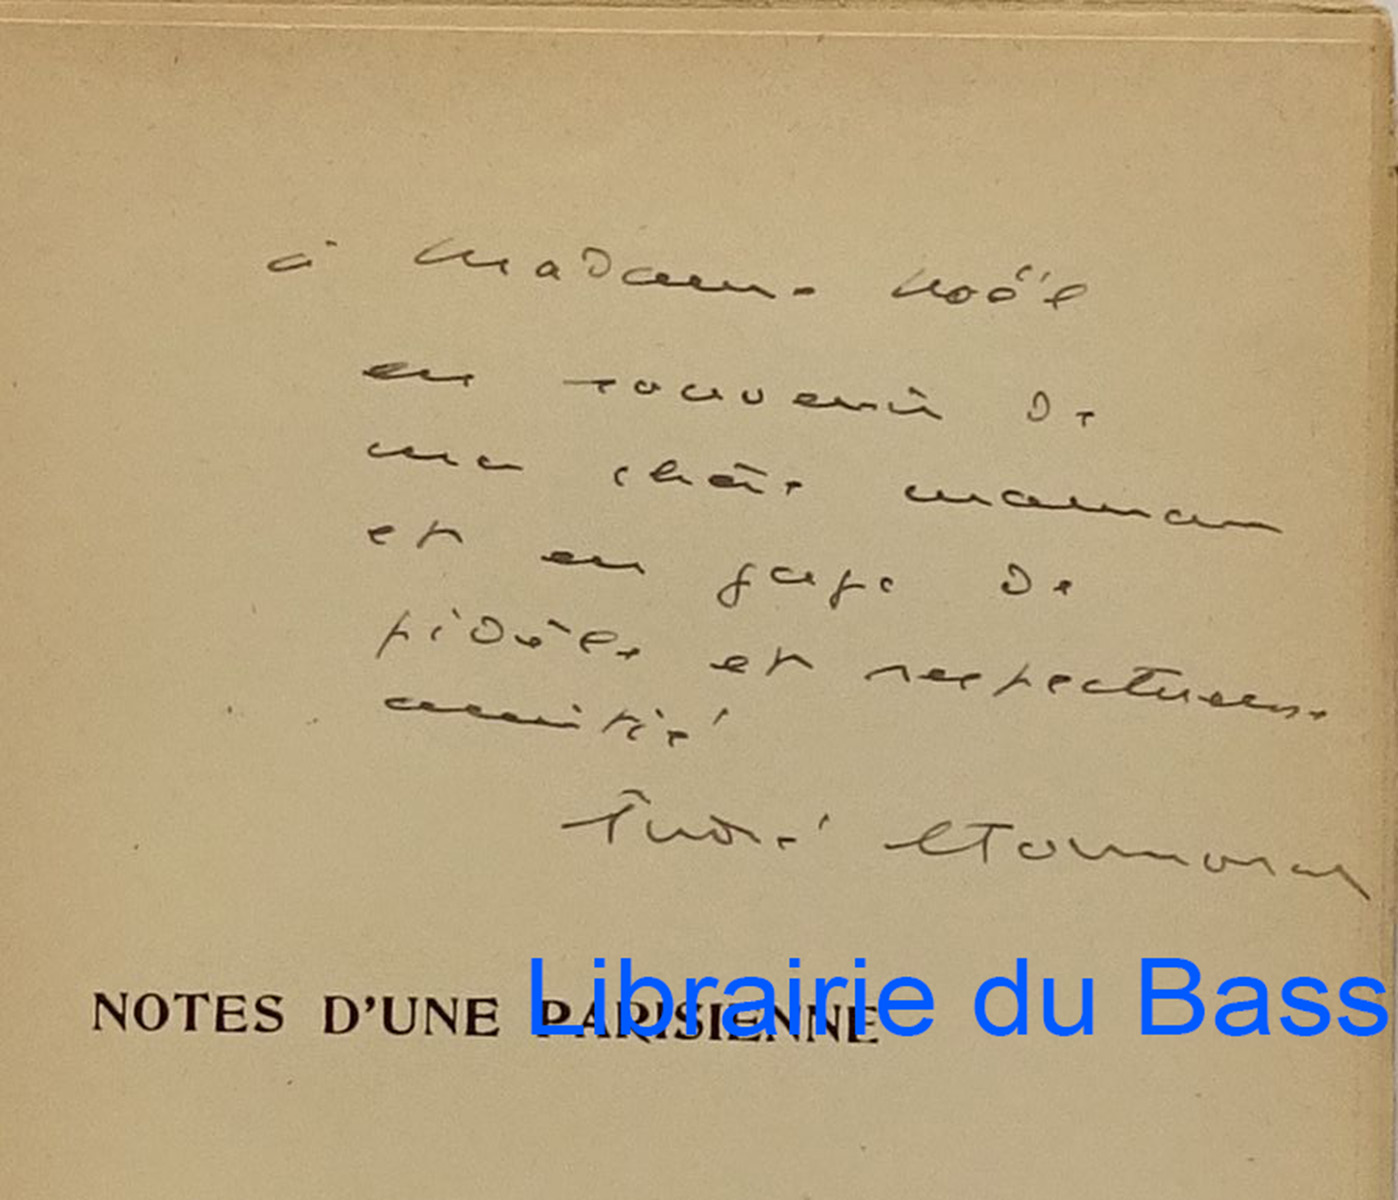 à Madame Noël
en souvenir de
ma chère maman
et en gage de
fidèle et respectueuse
amitié
André
NOTES D'UNE PARISIENNE
Librairie du Bass